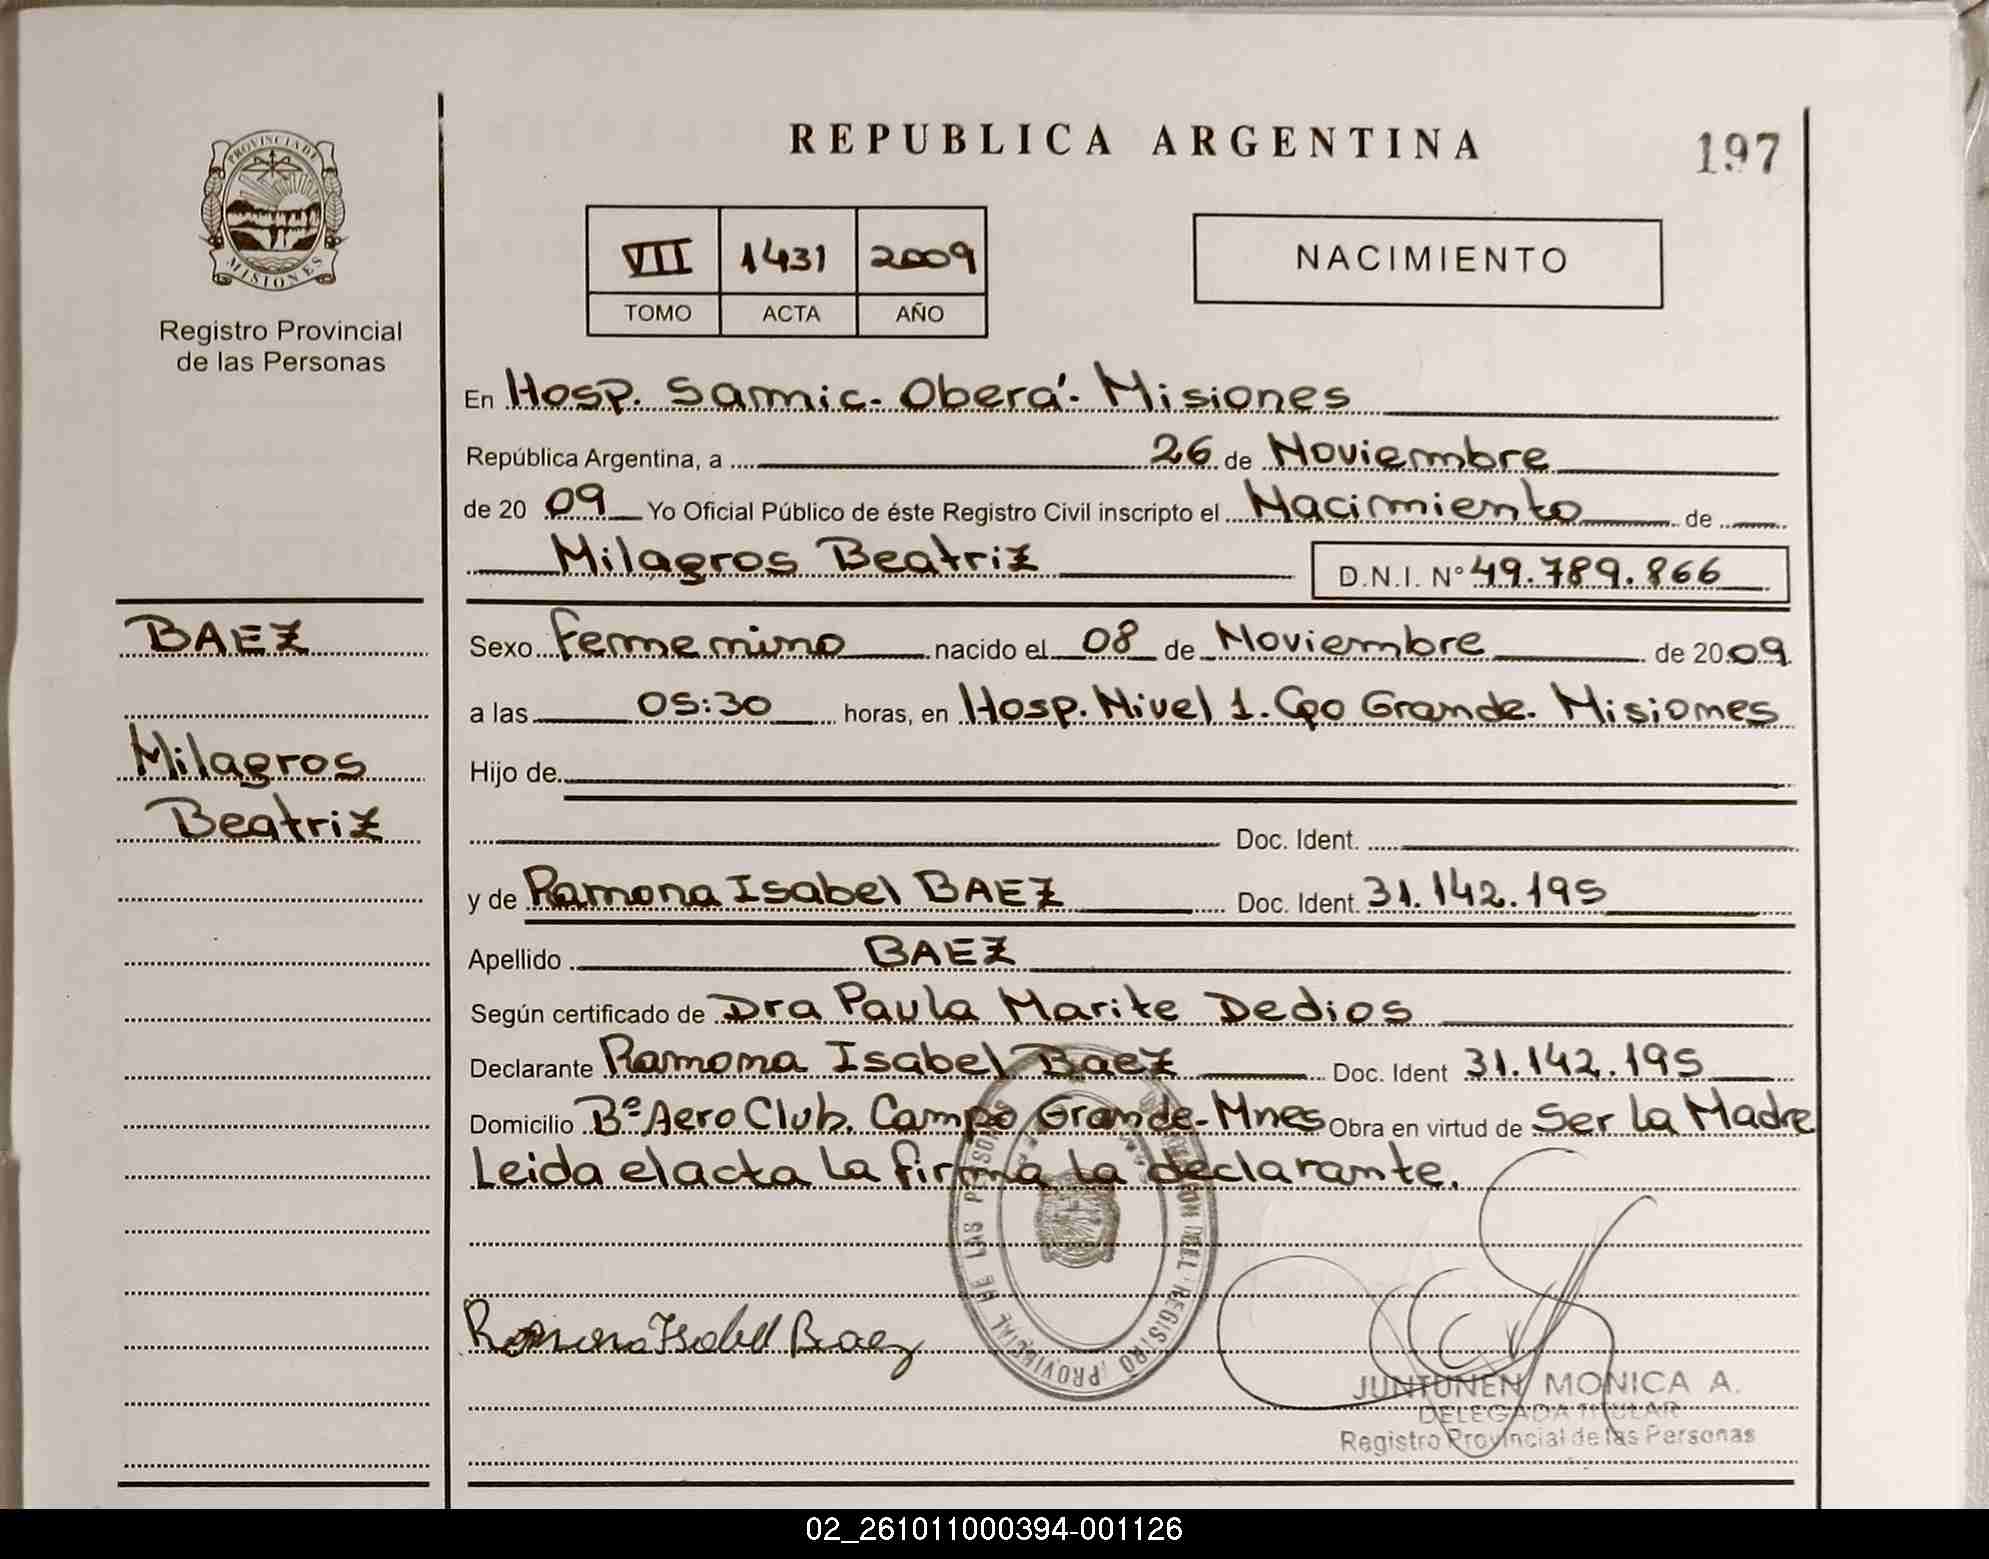 REPUBLICA ARGENTINA
197
PROVINCIA DE
MISIONES
Registro Provincial
de las Personas
VII 1431 2009
TOMO ACTA AÑO
NACIMIENTO
En Hosp. Samic. Oberá. Misiones
República Argentina, a 26 de Noviembre
de 20 09 Yo Oficial Público de éste Registro Civil inscripto el Nacimiento de
Milagros Beatriz D.N.I. N° 49.789.866
BAEZ
Milagros
Beatriz
Sexo Femenino nacido el 08 de Noviembre de 20 09
a las 05:30 horas, en Hosp. Nivel 1. Cpo Grande. Misiones
Hijo de
Doc. Ident.
y de Ramona Isabel BAEZ Doc. Ident. 31.142.195
Apellido BAEZ
Según certificado de Dra Paula Marite Dedios
Declarante Ramona Isabel Baez Doc. Ident 31.142.195
Domicilio Bº Aero Club. Campo Grande-Mnes Obra en virtud de Ser la Madre
Leida el acta la firma la declarante.
Ramona Isabel Baez
DEL REGISTRO PROVINCIAL DE LAS PERSONAS
JUNTUNEN MONICA A.
DELEGADA TITULAR
Registro Provincial de las Personas
02_261011000394-001126